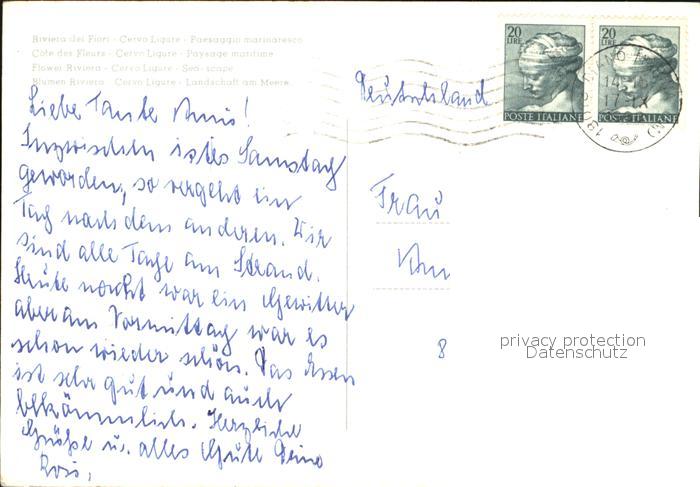 Riviera dei Fiori - Cervo Ligure - Paesaggio marinaresco
Côte des Fleurs - Cervo Ligure - Paysage maritime
Flower Riviera - Cervo Ligure - Sea-scape
Blumen Riviera - Cervo Ligure - Landschaft am Meere
20
LIRE
POSTE ITALIANE
20
LIRE
POSTE ITALIANE
Deutschland
Liebe Tante Anni!
Inzwischen ist es Samstag
geworden, so vergeht ein
Tag nach dem anderen. Wir
sind alle Tage am Strand.
Heute nacht war ein Gewitter
aber am Vormittag war es
schon wieder schön. Das Essen
ist sehr gut und auch
bekömmlich. Herzliche
Grüße u. alles Gute Deine
Rosi.
Frau
8
privacy protection
Datenschutz